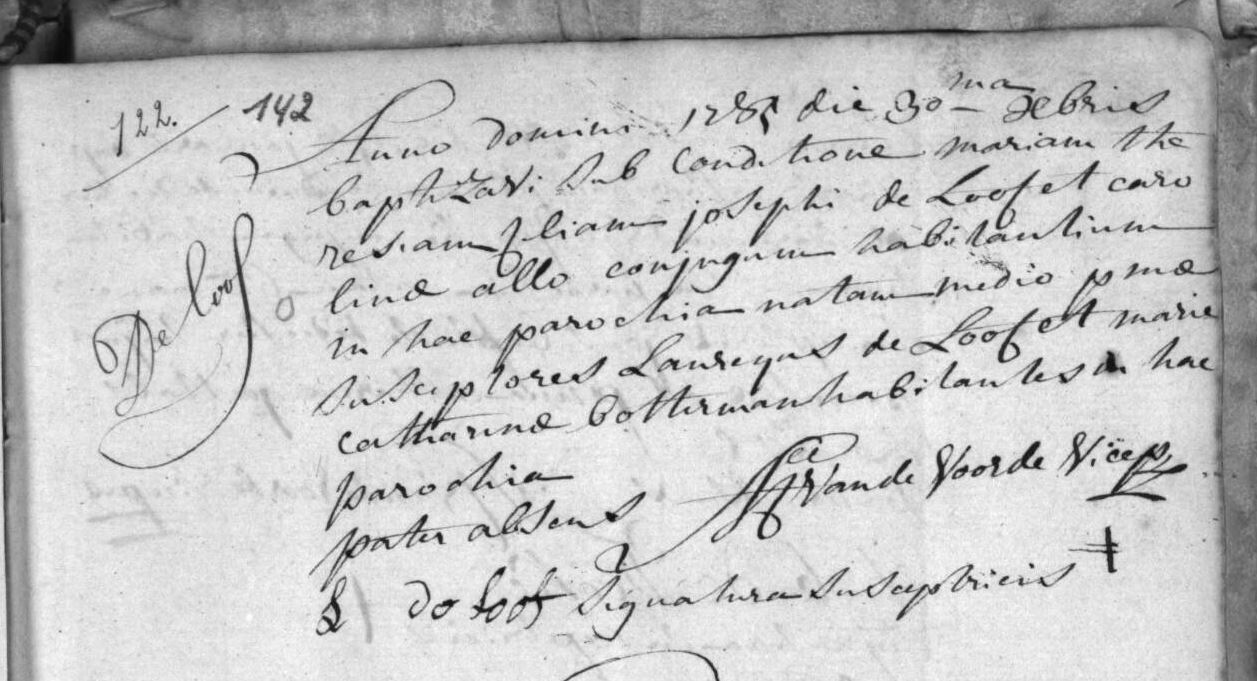 122. 142
Anno domini 1785 die 30ma Xbris
baptizavi sub conditione mariam the
resiam filiam josephi de Loof et caro
linæ allo conjugum habitantium
in hac parochia natam medio pmæ
susceptores Laureyns de Loof et marie
catharinæ botterman habitantes in hac
parochia
pater absens Vande Voorde Vicep
De loof
L do loof signatura susceptricis ‡